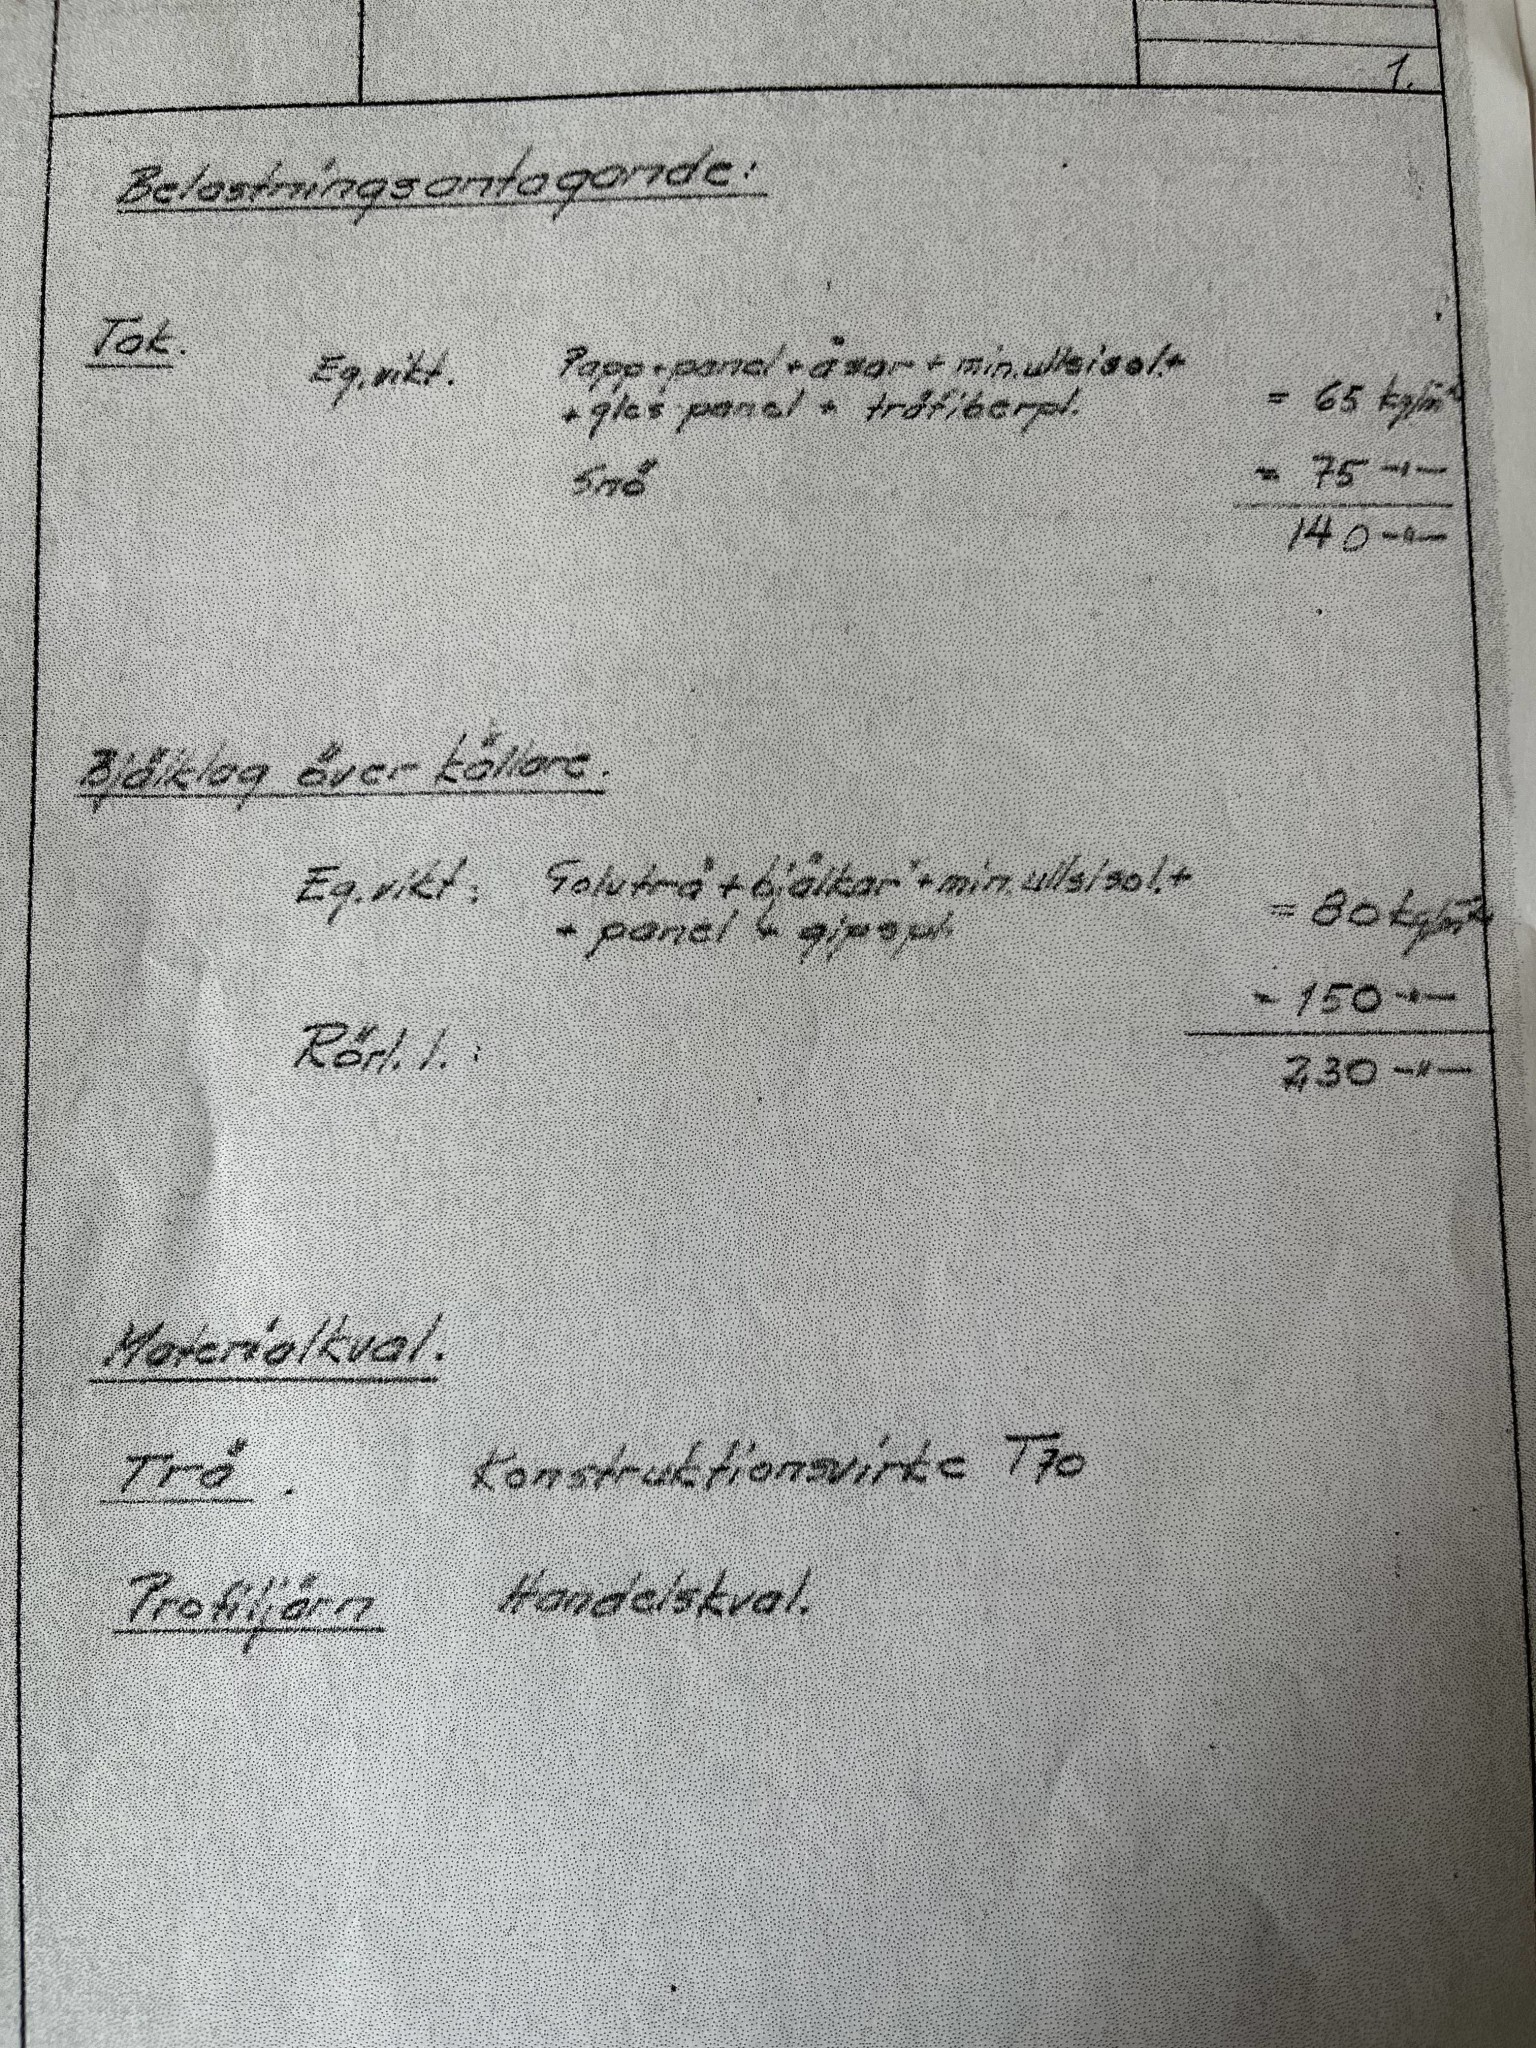 1.
Belastningsantagande:
Tak.
Eg.vikt. Papp+panel+åsar+min.ullsisol.+
+gles panel + träfiberpl. = 65 kg/m²
Snö = 75 -"-
140 -"-
Bjälklag över källare.
Eg.vikt: Golvträ+bjälkar+min.ullsisol.+
+ panel + gipspl. = 80 kg/m²
Rörl. l.: - 150 -"-
230 -"-
Materialkval.
Trä. Konstruktionsvirke T70
Profiljärn Handelskval.